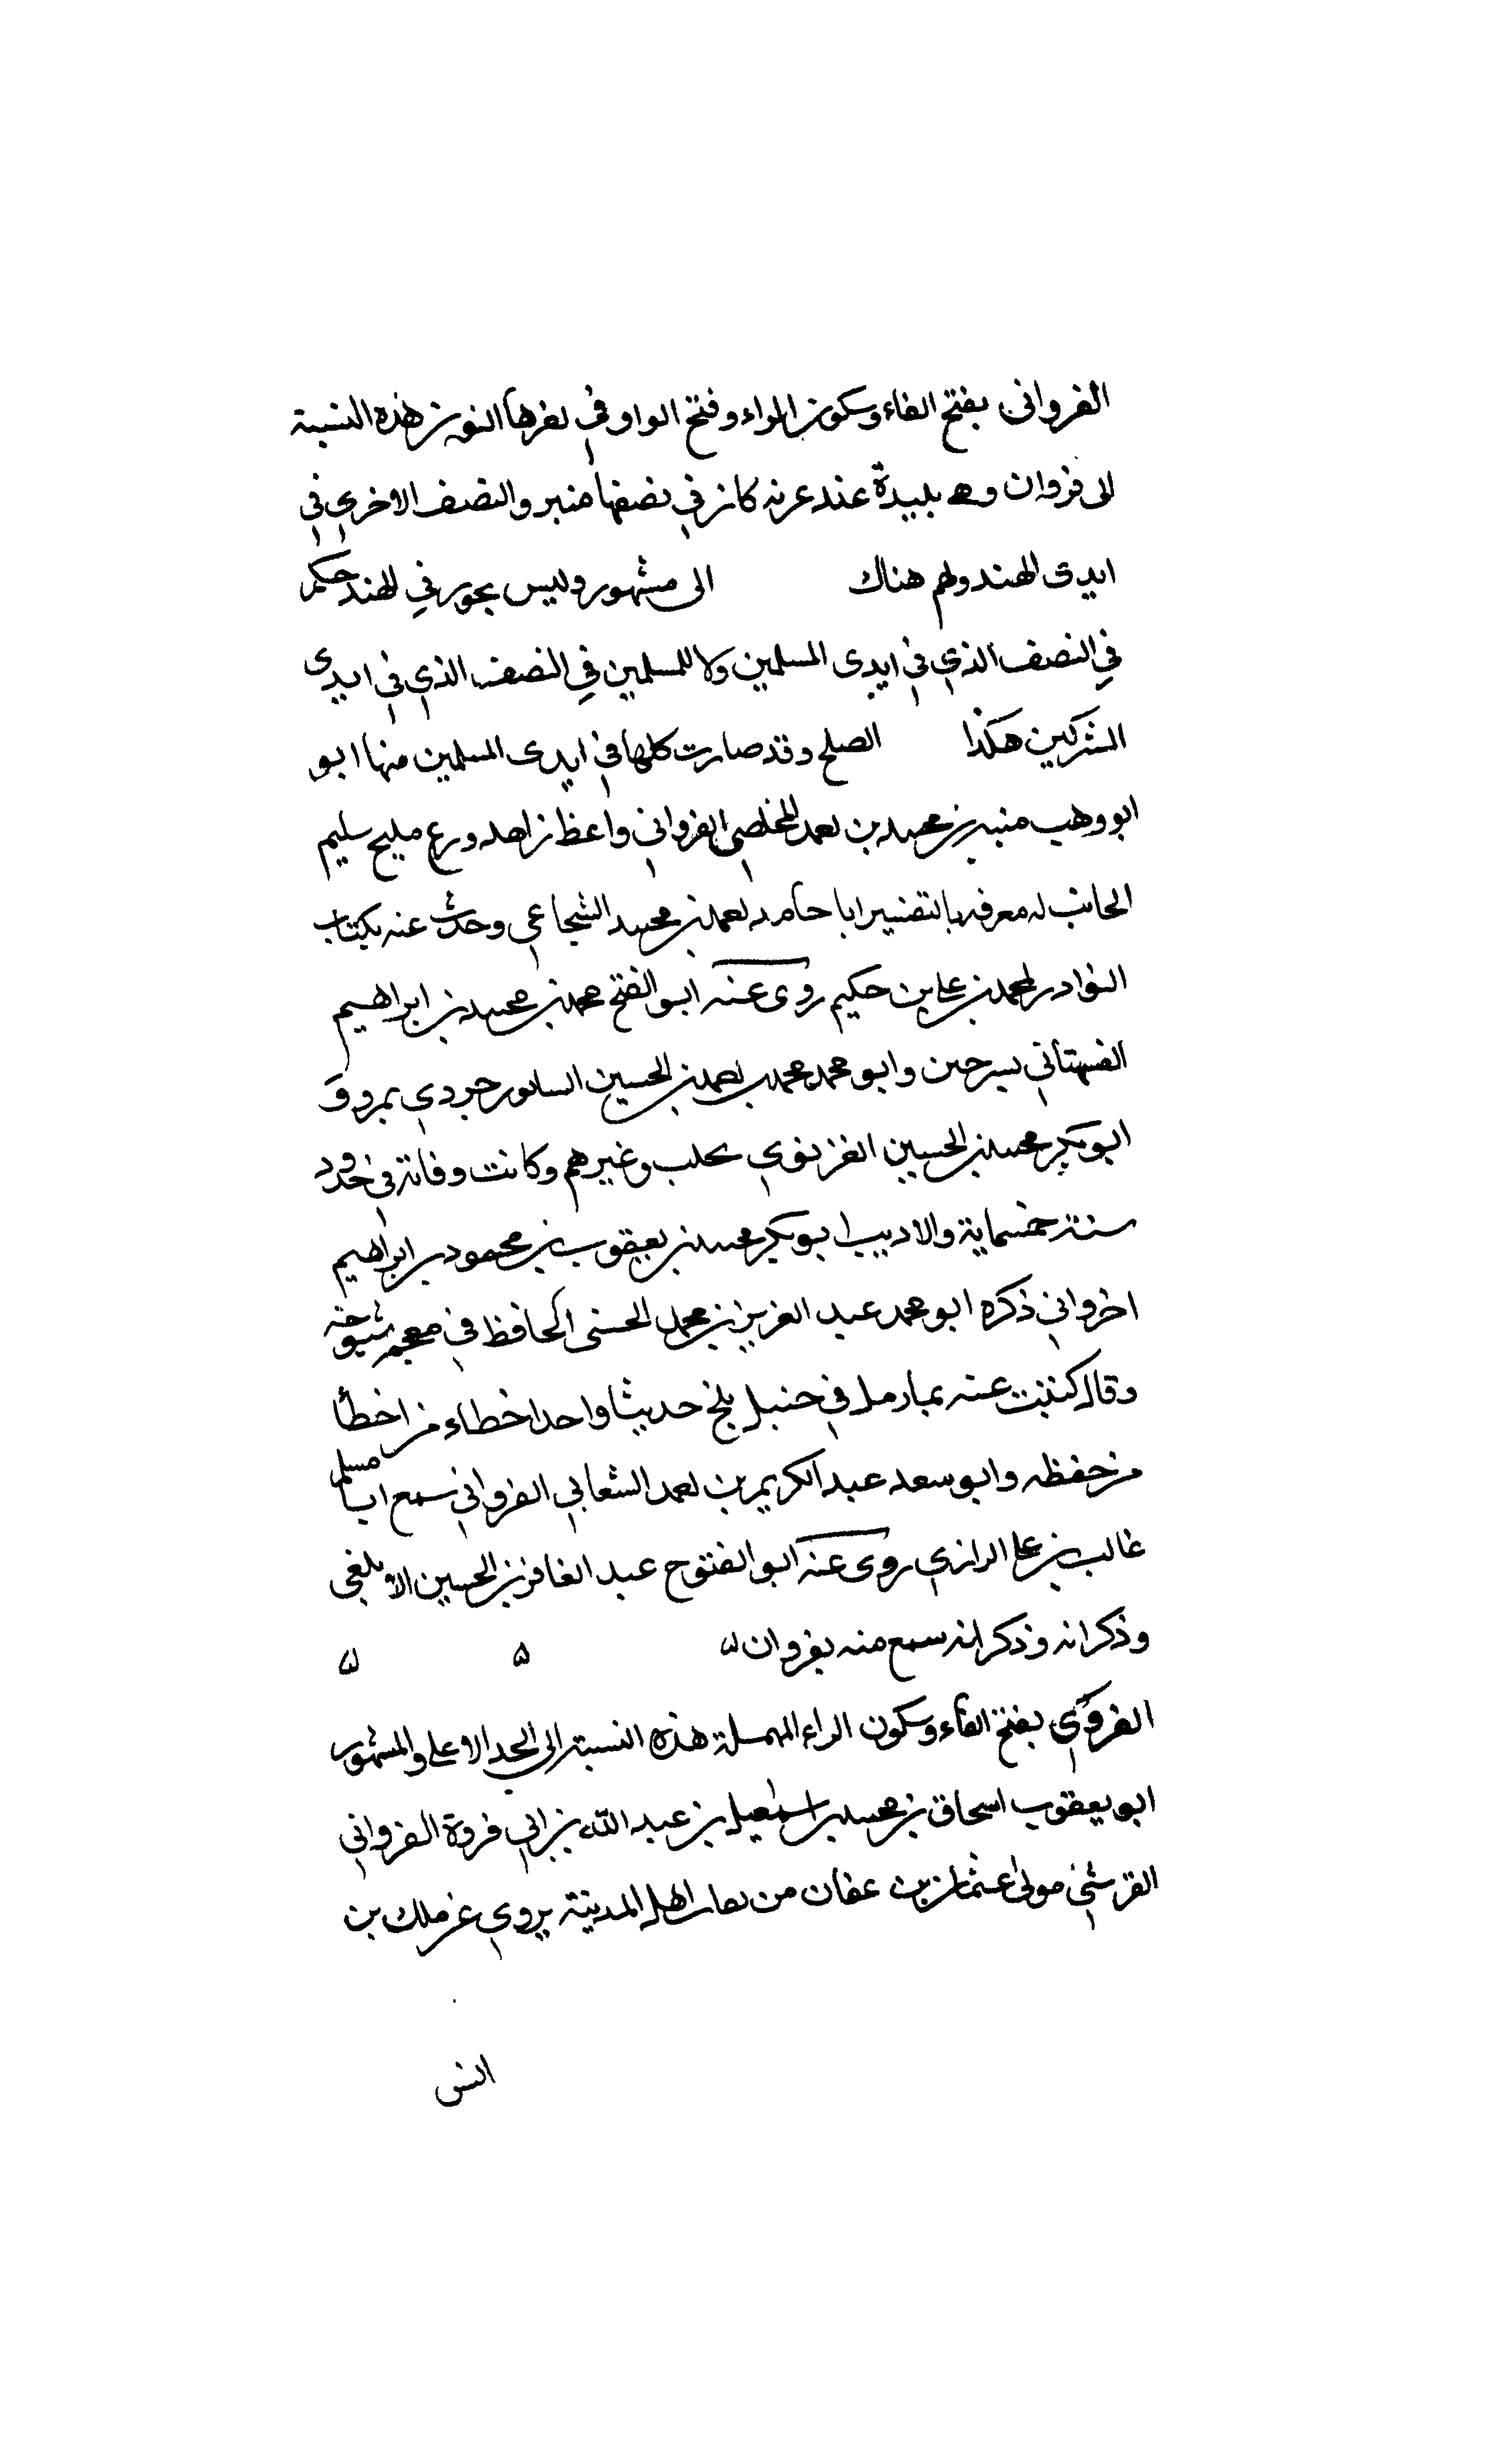 الفروانى بفتح الفاء وسكون الراء وفتح الواو وفي اخرها النون هذه النسبة
الى فروان وهى بليدة عند غزنه كان في نصفها منبر والنصف الاخرى في
ايدى الهند ولهم هناك الى مشهور وليس يجوز في الهند حكم
في النصف الذي في ايدى المسلمين ولا للمسلمين في النصف الذي في ايدى
المشركين هكذا الصلح وقد صارت كلها في ايدى المسلمين منها ابو
ابو وهب منبه بن محمد بن احمد المخلصي الفرواني واعظ زاهد ورع مليح سليم
الجانب له معرفه بالتفسير ابا حامد احمد بن محمد الشجاعي وحدث عنه بكتاب
النوادر لمحمد بن علي بن حكيم روى عنه ابو الفتح محمد بن محمد بن ابراهيم
القهستاني بسرخس وابو محمد محمد بن احمد بن الحسين بمرو و
ابو بكر محمد بن الحسين الغزنوي بحلب وغيرهم وكانت وفاته في حدود
سنة خمسماية والاديب ابو بكر محمد بن يعقوب بن محمود بن ابراهيم
اخرواني ذكره ابو محمد عبد العزيز بن محمد الحسنى الحافظ في معجم شيوخه
وقال كتبت عنه في حنبل بلخ حديثا واحدا خطاء من اخطأ
من حفظه وابو سعد عبد الكريم بن احمد الثعالبي الفرواني سمع ابا مسلم
غالب بن علي الرازي روى عنه ابو الفتوح عبد الغافر بن الحسين الالمعي
وذكر انه وذكر انه سمع منه بفروان ه ه ه
الفروي بفتح الفاء وسكون الراء المهملة هذه النسبة الى الجد الاعلى والمشهور
ابو يعقوب اسحاق بن محمد بن اسمعيل بن عبد الله بن ابي فروة الفرواني
القرشي مولى عثمان بن عفان من اهل المدينة يروي عن ملك بن
انس